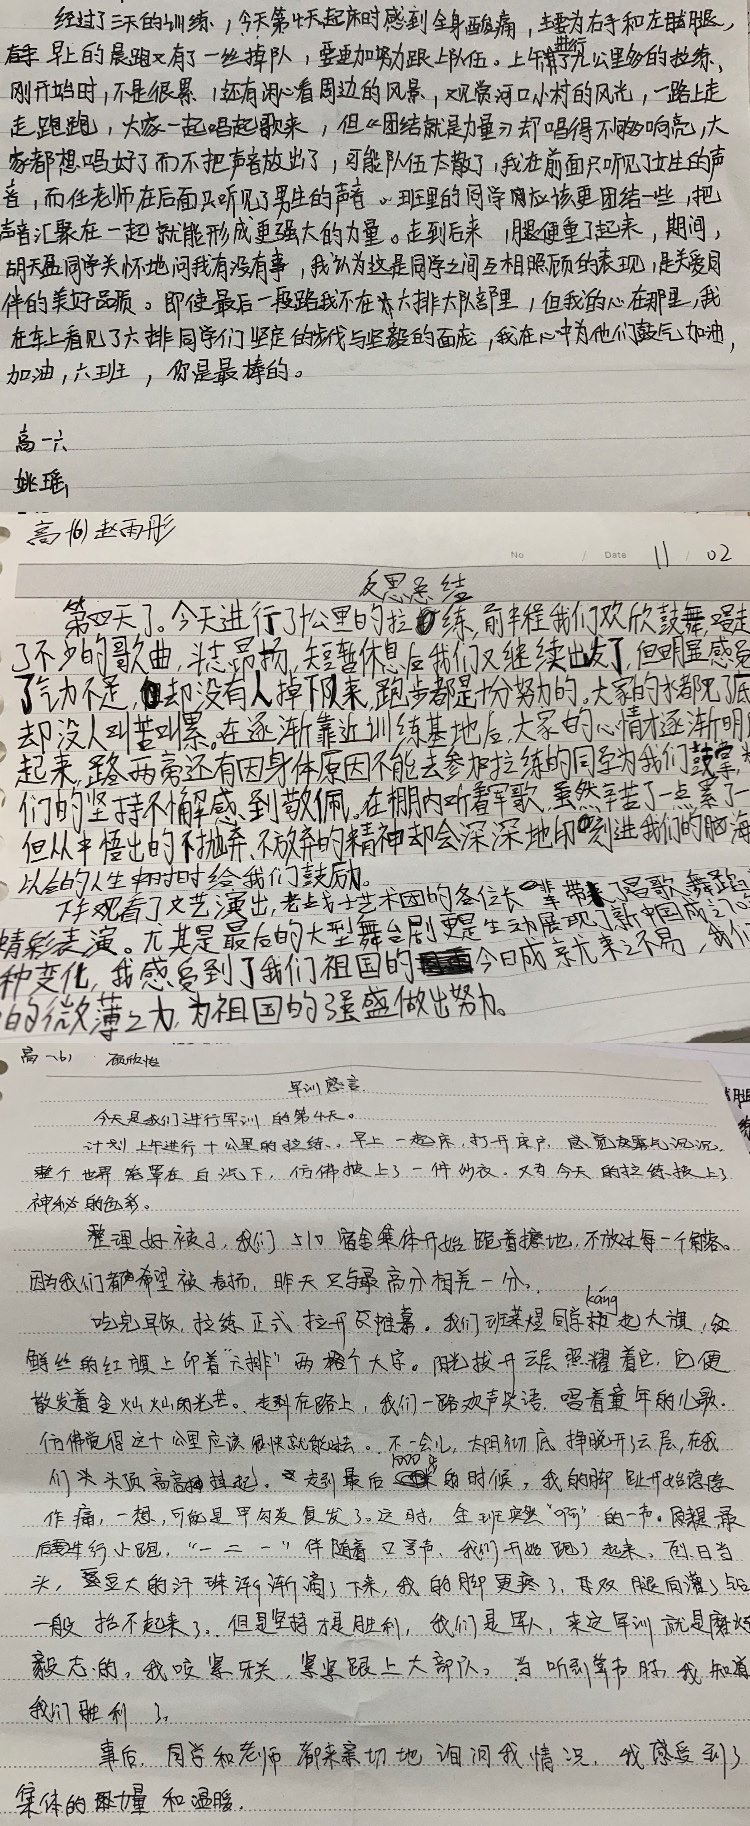 经过了三天的训练，今天第4天起床时感到全身酸痛，主要为右手和左脚腿，
早上的晨跑又有了一丝掉队，要更加努力跟上队伍。上午进行了九公里多的拉练，
刚开始时，不是很累，还有闲心看周边的风景，观赏河口小村的风光，一路上走
走跑跑，大家一起唱起歌来，但《团结就是力量》却唱得不够响亮，大
家都想唱好了而不把声音放出了，可能队伍太散了，我在前面只听见了女生的声
音，而任老师在后面只听见了男生的声音。班里的同学应该更团结一些，把
声音汇聚在一起就能形成更强大的力量。走到后来，腿便重了起来，期间，
胡天磊同学关怀地问我有没有事，我认为这是同学之间互相照顾的表现，是关爱同
伴的美好品质。即使最后一段路我不在六排大队部里，但我的心在那里，我
在车上看见了六排同学们坚定的步伐与坚毅的面庞，我在心中为他们鼓气加油，
加油，六班，你是最棒的。
高一六
姚瑶
高一(6)赵雨彤
No / Date 11 / 02
反思总结
第四天了。今天进行了十公里的拉练，前半程我们欢欣鼓舞，唱走
了不少的歌曲，斗志昂扬，短暂休息后我们又继续出发了，但明显感觉
了气力不足，却没有人掉下队来，跑步都是十分努力的。大家的水都见了底
却没人叫苦叫累。在逐渐靠近训练基地后，大家的心情才逐渐明
起来，路两旁还有因身体原因不能去参加拉练的同学为我们鼓掌，为
们的坚持不懈感到敬佩。在棚内听着军歌，虽然辛苦了一点累了一
但从中悟出的不抛弃、不放弃的精神却会深深地印刻进我们的脑海
以后的人生中时时给我们鼓励。
下午观看了文艺演出，老战士艺术团的各位长辈带来了唱歌、舞蹈
精彩表演。尤其是最后的大型舞台剧更是生动展现了新中国成立
种变化，我感受到了我们祖国的今日成就来之不易，我们
的微薄之力，为祖国的强盛做出努力。
高一(6) 顾欣怡
军训感言
今天是我们进行军训的第4天。
计划上午进行十公里的拉练。早上一起床，打开床户，感觉雾气沉沉，
整个世界笼罩在白洗下，仿佛披上了一件纱衣。又为今天的拉练披上了
神秘的色彩。
整理好被子，我们510宿舍集体开始跪着擦地，不放过每一个角落。
因为我们都希望被表扬，昨天只与最高分相差一分。
吃完早饭，拉练正式拉开了帷幕。我们班煜同学káng起大旗，红
鲜丝的红旗上印着“六排”两个大字。阳光拨开云层照耀着它，它便
散发着金灿灿的光芒。走在路上，我们一路欢声笑语，唱着童年的儿歌。
仿佛觉得这十公里应该很快就能过去。不一会儿，太阳彻底挣脱开了云层，在我
们头顶高高挂起。走到最后1000米的时候，我的脚趾开始隐隐
作痛，一想，可能是甲沟炎复发了。这时，全班突然“啊”的一声。原来最
后要进行小跑，“一二一”伴随着口号声，我们开始跑了起来，烈日当
头，豆大的汗珠渐渐滴了下来，我的脚更疼了，且双腿向灌了铅
一般抬不起来了。但是坚持才是胜利，我们是军人，来定军训就是磨炼
毅志的，我咬紧牙关，紧紧跟上大部队。当听到掌声时，我知道
我们胜利了。
事后，同学和老师都来亲切地询问我情况，我感受到了
集体的力量和温暖。